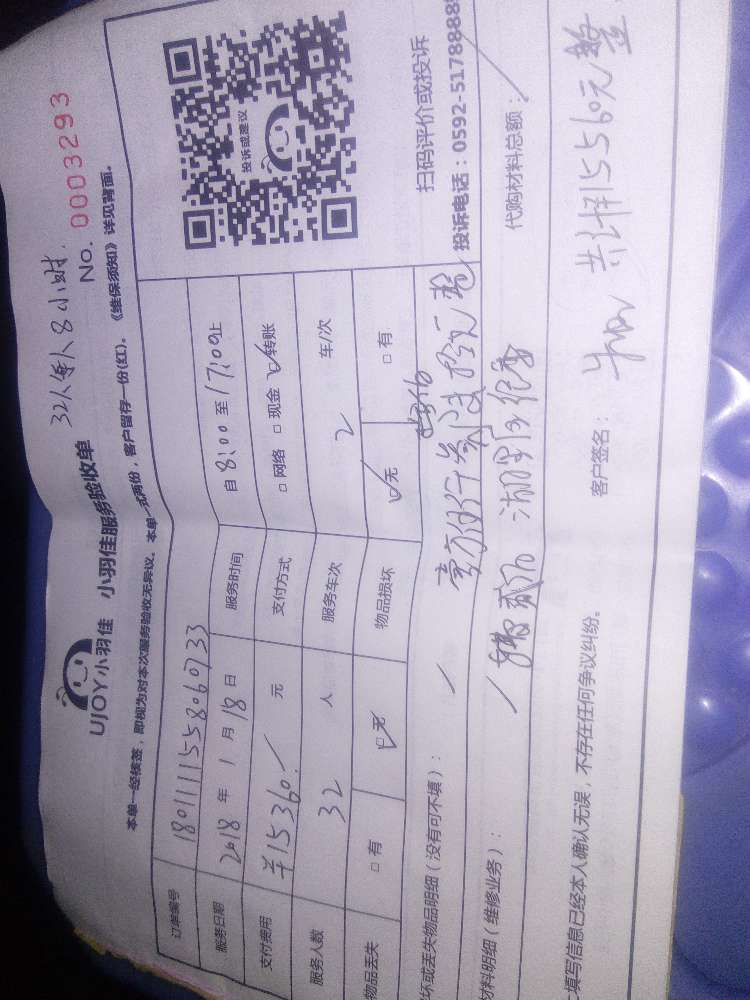 32人每人8小时.
UJOY小羽佳 小羽佳服务验收单
No. 0003293
本单一经核签，即视为对本次服务验收无异议。本单一式两份，客户留存一份(红)。《维保须知》详见背面。
订单编号 180111155806733
服务日期 2018 年 1 月 18 日 服务时间 自 8:00 至 17:00止
支付费用 ¥15360./ 元 支付方式 □ 网络 □ 现金 ☑ 转账
服务人数 32 人 服务车次 2 车/次
物品丢失 □ 有 ☑ 无 物品损坏 ☑ 无 □ 有
投诉或建议
扫码评价或投诉
投诉电话：0592-5178888
坏或丢失物品明细（没有可不填）： /
材料明细（维修业务）： / 代购材料总额： /
填写信息已经本人确认无误，不存在任何争议纠纷。 客户签名：
共计15560元整